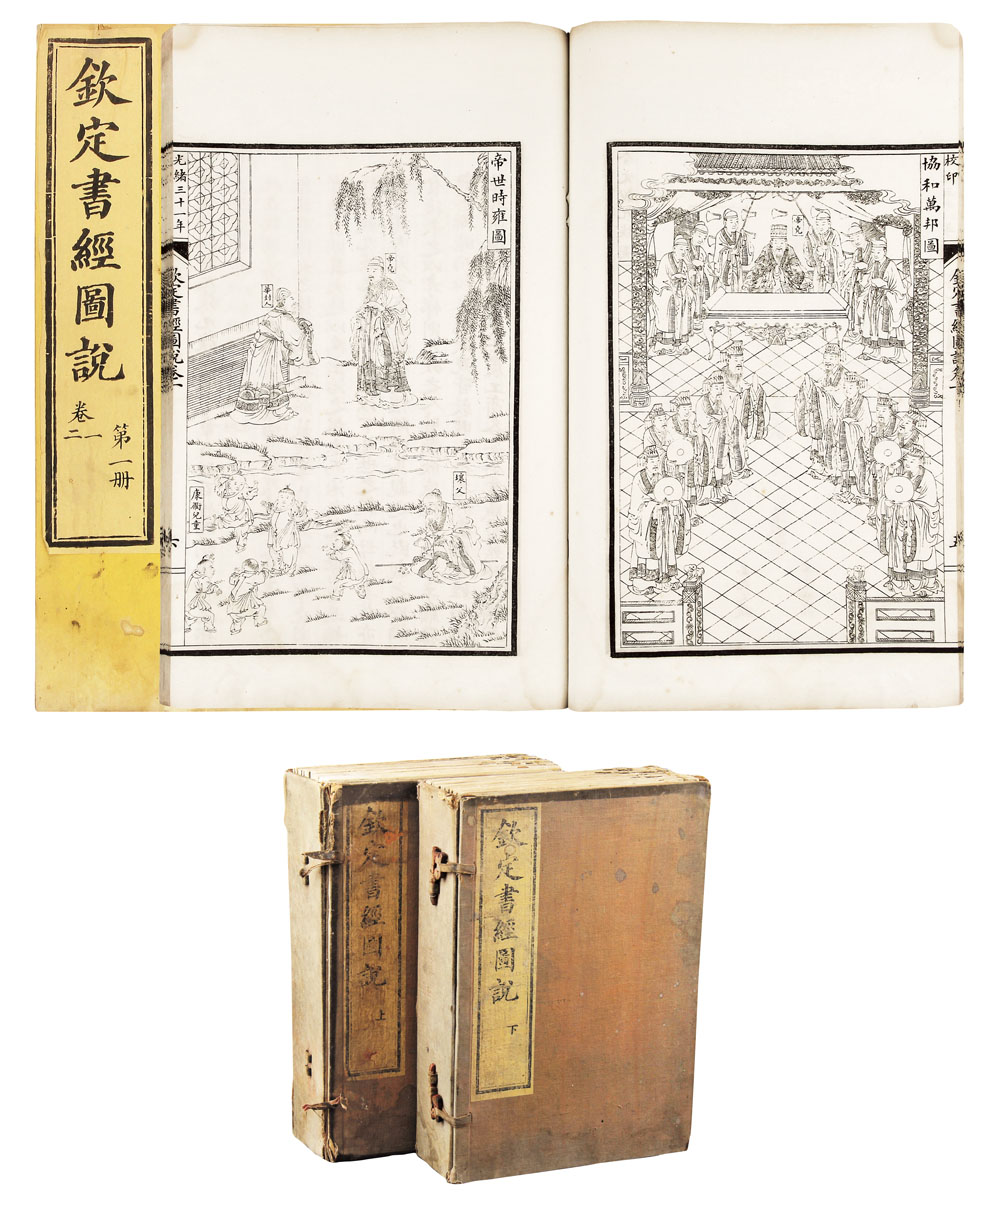 欽定書經圖說
卷一
二
第一册
協和萬邦圖
帝堯
校印
欽定書經圖說卷一
五
帝世時雍圖
帝堯
華封人
壤父
康衢兒童
光緒三十一年
欽定書經圖說卷一
六
欽定書經圖說
上
欽定書經圖說
下